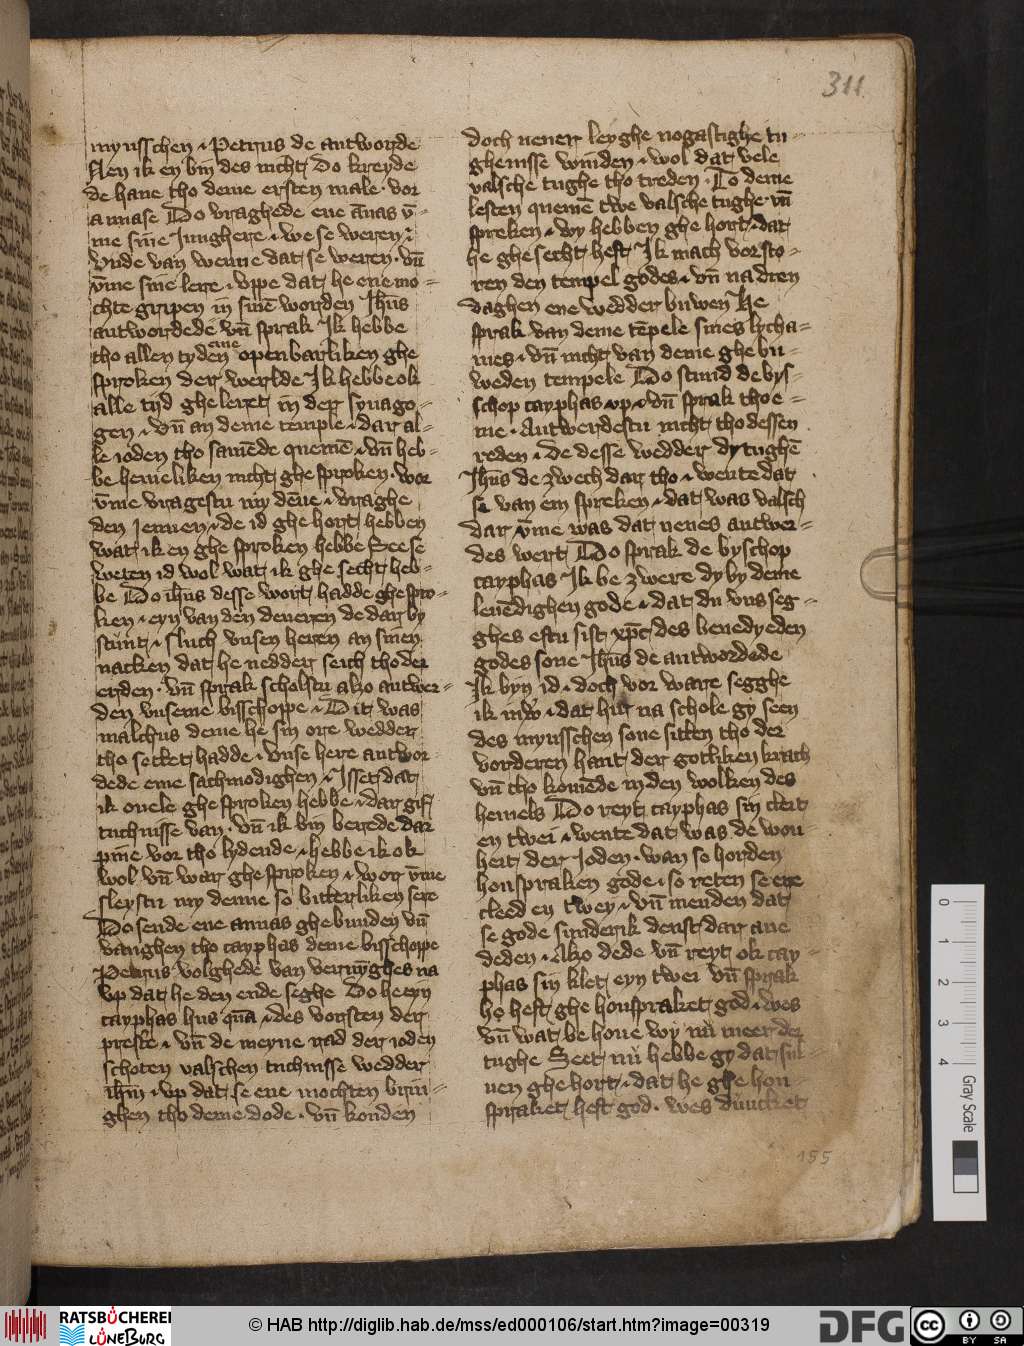 311
mynsschen ⁊ Petrus de antworde
Nen ik en bin des nicht Do kreyde
de hane tho deme ersten male · vor
annase Do vraghede ene ānas v̄-
me sine Junghere ⁊ we se weren ⁊
Vnde van wenne dat se weren · vn̄
v̄me sine lere ⁊ vppe dat he ene mo-
chte gripen in sinē worden Jhūs
antwordede vn̄ sprak Ik hebbe
tho allen tyden ene openbarliken ghe
sproken der werlde Ik hebbe ok
alle tijd gheleret in der synago-
gen ⁊ vn̄ an deme temple ⁊ dar al-
le ioden tho samēde quemē ⁊ vn̄ heb-
be hemeliken nicht ghesproken · wor
v̄me vragestu my dēne ⁊ vraghe
den Jennen ⁊ de id ghe hort hebben
wat ik en ghe sproken hebbe See se
weten id wol wat ik ghe secht heb-
be Do ihūs desse wort hadde ghespro-
ken ⁊ eyn van den deneren de dar by
stunt ⁊ sluch vnsen heren an sinen
nacken dat he nedder seich tho der
erden · vn̄ sprak scholstu also antwer-
den vnseme bisschoppe ⁊ Dit was
malchus deme he sin ore wedder
tho settet hadde ⁊ vnse here antwor-
dede eme sachmodighen ⁊ Isset dat
ik ouele ghe sproken hebbe ⁊ dar gif
tuchnisse van · vn̄ ik bin berede dar
pine vor tho lydende ⁊ hebbe ik ok
wol vn̄ war ghe sproken ⁊ wor v̄me
sleystu my denne so bitterliken sere
Do sende ene annas ghebunden vn̄
vanghen tho cayphas deme bisschoppe
Petrus volghede van verrynghes na
vp dat he den ende seghe Do he tyn
cayphas hus quā ⁊ des vorsten der
prestē ⁊ vn̄ de meyne rad der ioden
schoten valschen tuchnisse wedder
ihm̄ ⁊ vp dat se ene mochten brin-
ghen tho deme dode · vn̄ konden
doch nener leyghe nogastighe tu-
ghenisse vinden ⁊ wol dat vele
valsche tughe tho treden · To deme
lesten quemē twe valsche tughe · vn̄
spreken ⁊ wy hebben ghe hort ⁊ dat
he ghe secht heft Ik mach vorsto-
ren den tempel godes ⁊ vn̄ na dren
daghen ene wedder buwen He
sprak van deme tēpele sines lycha-
mes ⁊ vn̄ nicht van deme ghe bu-
weden tempele Do stund de bys-
schop cayphas vp ⁊ vn̄ sprak tho e-
me · Antwerdestu nicht tho dessen
reden ⁊ de desse wedder dy tughē
Jhūs de zwech dar tho ⁊ wente dat
se van em spreken ⁊ dat was valsch
dar v̄me was dat nenes antwer-
des wert Do sprak de byschop
cayphas Ik be zwere dy by deme
leuēdighen gode ⁊ dat du vns seg-
ghes eftu sist xp̄c des benedyeden
godes sone Jhūs de antwordede
Ik byn id ⁊ doch vor ware segghe
ik inw̄ ⁊ dat hir na schole gy seen
des mynsschen sone sitten tho der
vorderen hant der gotliken krach
vn̄ tho komēde in den wolken des
hemels Do reyt cayphas sin cleit
en twei ⁊ wente dat was de won-
heit der Joden · wan se horden
honspraken gode ⁊ so reten se ere
cleed en twey ⁊ vn̄ menden dat
se gode sunderik denst dar ane
deden ⁊ Also dede vn̄ reyt ok cay-
phas sin klet eyn twei vn̄ sprak
he heft ghe honspraket god ⁊ wes
vn̄ wat be houe wy nū meer der
tughe Seet nū hebbe gy dat sul-
uen ghe hort ⁊ dat he ghe hon
spraket heft god · wes dūncket
155
0 1 2 3 4 Gray Scale
RATSBÜCHEREI
LÜNEBURG
© HAB http://diglib.hab.de/mss/ed000106/start.htm?image=00319
DFG
cc BY SA